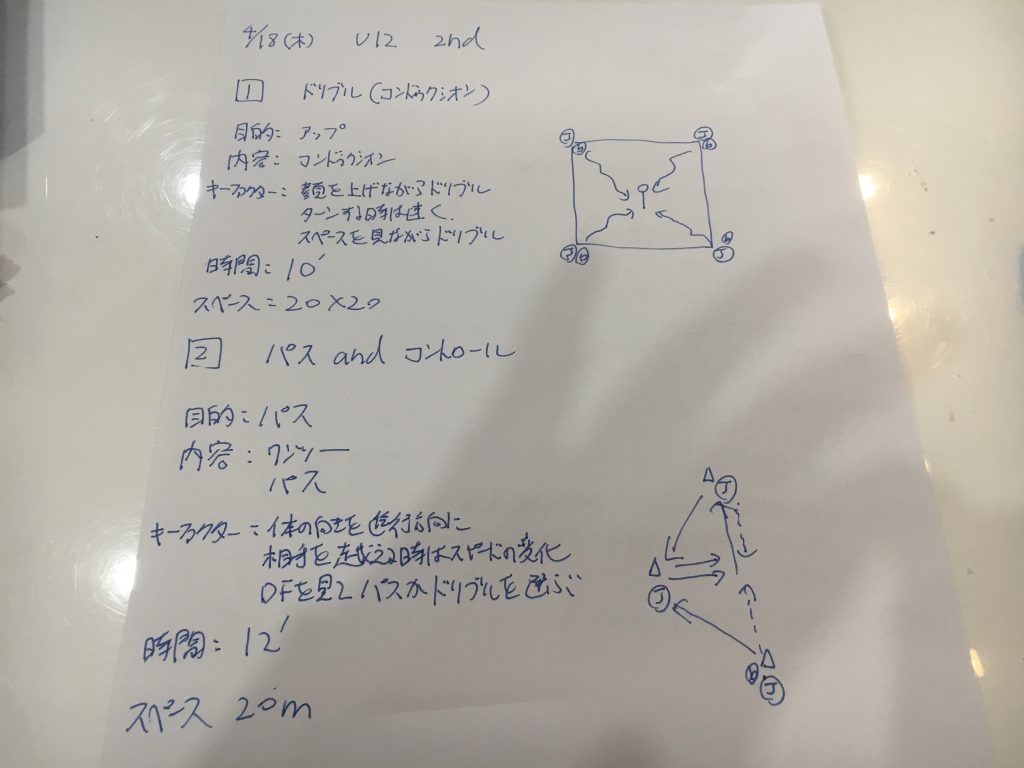 4/18(木) U12 2nd
1 ドリブル(コンドゥクシオン)
目的: アップ
内容: コンドゥクシオン
キーファクター: 顔を上げながらドリブル
ターンする時は速く.
スペースを見ながらドリブル
時間: 10'
スペース=20×20
J J
J J
2 パス and コントロール
目的: パス
内容: ワンツー
パス
キーファクター: 体の向きを進行方向に
相手を越える時はスピードの変化
DFを見てパスかドリブルを選ぶ
時間: 12'
スペース 20m
J
J
J